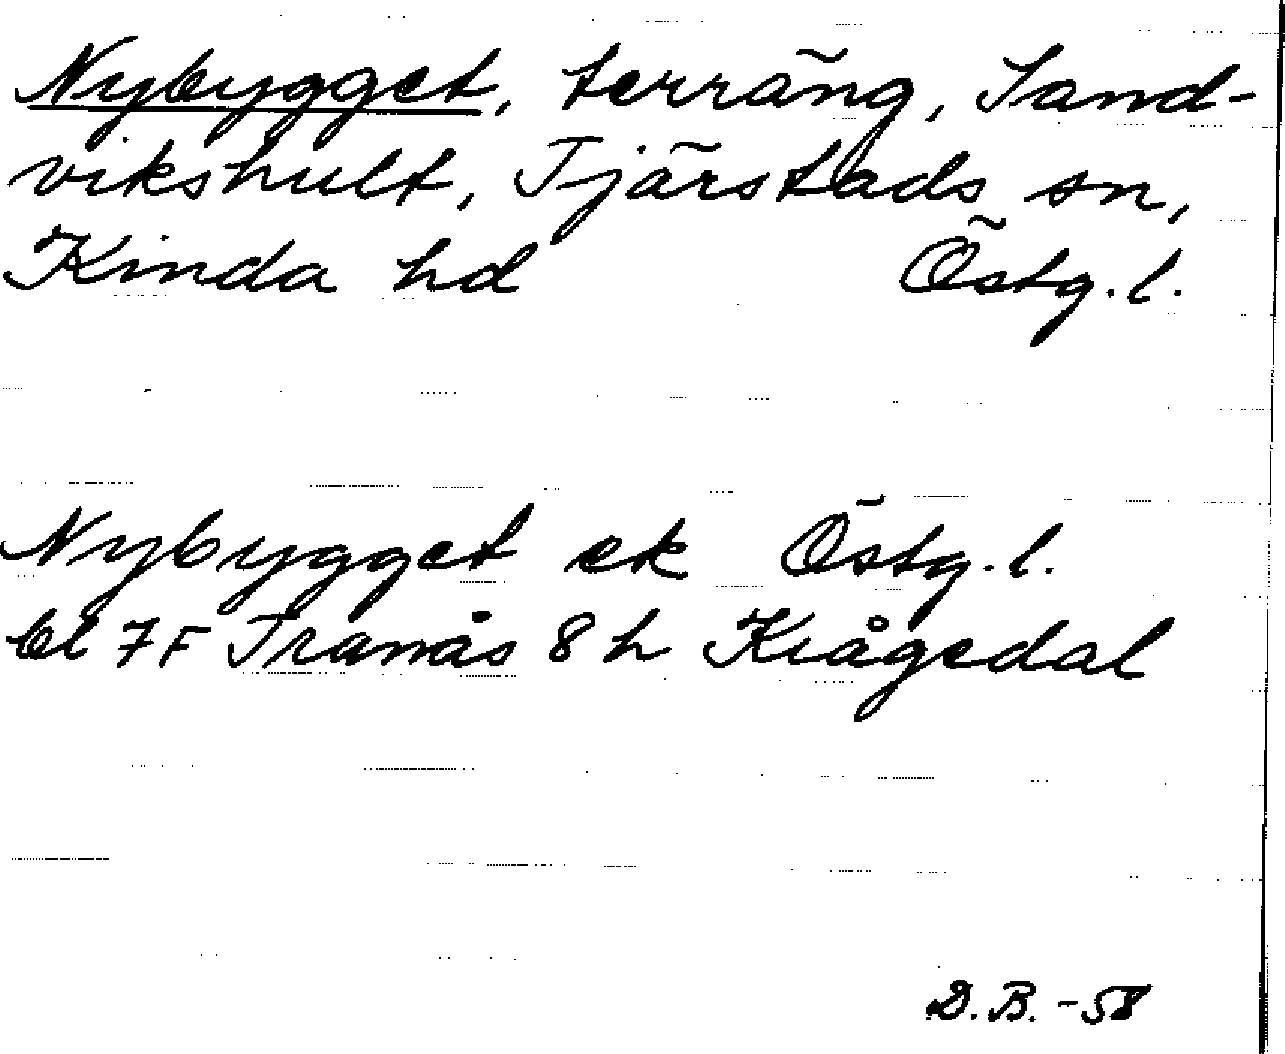 Nybygget, terräng, Sand-
vikshult, Tjärstads sn,
Kinda hd Östg.l.
Nybygget ek Östg.l.
bl 7F Tranås 8h Krågedal
D.B. -58